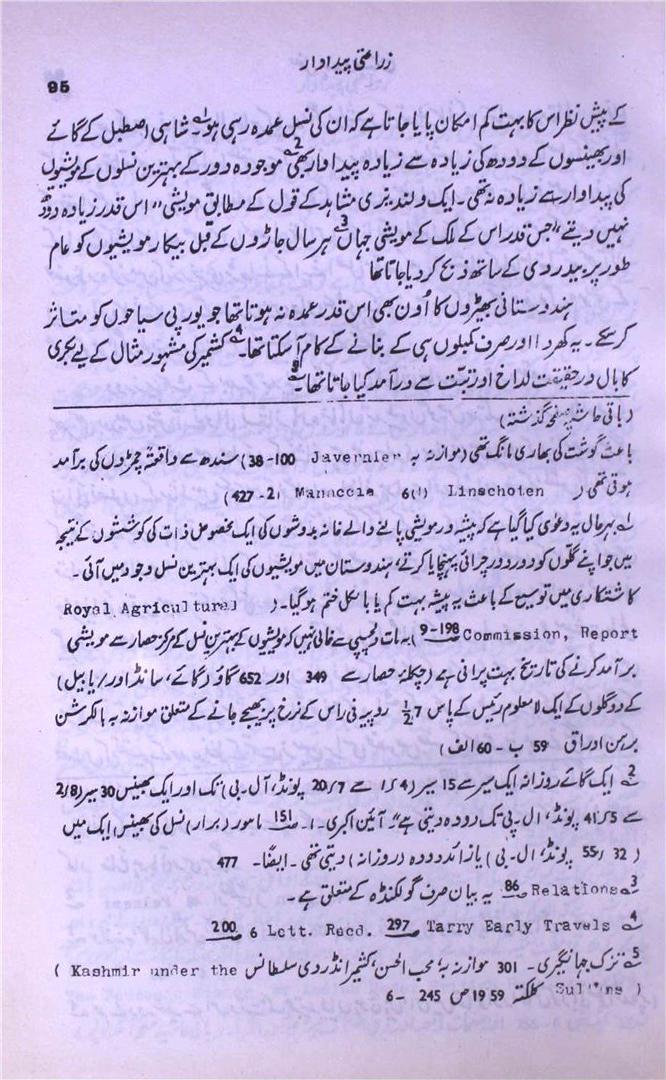 زراعتی پیداوار
95
کے پیش نظر اس کا بہت کم امکان پایا جاتا ہے کہ ان کی نسل عمدہ رہی ہو۔1 شاہی اصطبل کے گائے
اور بھینسوں کے دودھ کی زیادہ سے زیادہ پیداوار بھی2 موجودہ دور کے بہترین نسلوں کے مویشیوں
کی پیداوار سے زیادہ نہ تھی۔ ایک ولندیزی مشاہد کے قول کے مطابق مویشی "اس قدر زیادہ دودھ
نہیں دیتے" جس قدر اس کے ملک کے مویشی جہاں3 ہر سال جاڑوں کے قبل بیکار مویشیوں کو عام
طور پر بیدردی کے ساتھ ذبح کر دیا جاتا تھا
ہندوستانی بھیڑوں کا اُون بھی اس قدر عمدہ نہ ہوتا تھا جو یورپی سیاحوں کو متاثر
کر سکے۔ یہ کھردرا اور صرف کمبلوں ہی کے بنانے کے کام آ سکتا تھا۔4 کشمیر کی مشہور مثال کے لیے بکری
کا بال درحقیقت لداخ اور تبت سے درآمد کیا جاتا تھا۔5
(باقی حاشیہ صفحہ گذشتہ)
باعث گوشت کی بھاری مانگ تھی (موازنہ بہ Javernier 38-100) سندھ سے واقعتہً چمڑوں کی برآمد
ہوتی تھی ( Linschoten 6(1) Manaccla 427-2)
1 بہر حال یہ دعویٰ کیا گیا ہے کہ پیشہ ور مویشی پالنے والے خانہ بدوشوں کی ایک مخصوص ذات کی کوششوں کے نتیجہ
میں جو اپنے گلّوں کو دور دور چرائی پہنچایا کرتے، ہندوستان میں مویشیوں کی ایک بہترین نسل وجود میں آئی۔
کاشتکاری میں توسیع کے باعث یہ پیشہ بہت کم یا بالکل ختم ہو گیا۔ ( Royal Agricultural
Commission, Report 198-9) یہ بات دلچسپی سے خالی نہیں کہ مویشیوں کے بہترین نسل کے مرکز حصار سے مویشی
برآمد کرنے کی تاریخ بہت پرانی ہے (چکلہ حصار سے 349 اور 652 گاؤ (گائے، سانڈ اور / یا بیل)
کے دو گلوں کے ایک لا معلوم رئیس کے پاس 7½ روپیہ فی راس کے نرخ پر بھیجے جانے کے متعلق موازنہ بہ بالکرشن
برہمن اوراق 59 ب - 60 الف)
2 ایک گائے روزانہ ایک سیر سے 15 سیر (1/4 سے 20/7 پونڈ، آل۔بی) تک اور ایک بھینس 30 سیر (2/8
سے 41/5 پونڈ، ال۔بی تک دودھ دیتی ہے"۔ آئین اکبری۔ 1۔ 151 نامور (برار) نسل کی بھینس ایک میں
(32 / 55 پونڈ، ال۔بی) یا زائد دودھ روزانہ) دیتی تھی۔ ایضًا۔ 477
3 Relations 86 یہ بیان صرف گولکنڈہ کے متعلق ہے۔
4 Tarry Early Travels 297 6 Lett. Recd. 200
5 تزک جہانگیری۔ 301 موازنہ بہ، محب الحسن، کشمیر انڈر دی سلطانس (Kashmir under the
Sultans) کلکتہ 1959 ص 245 -6